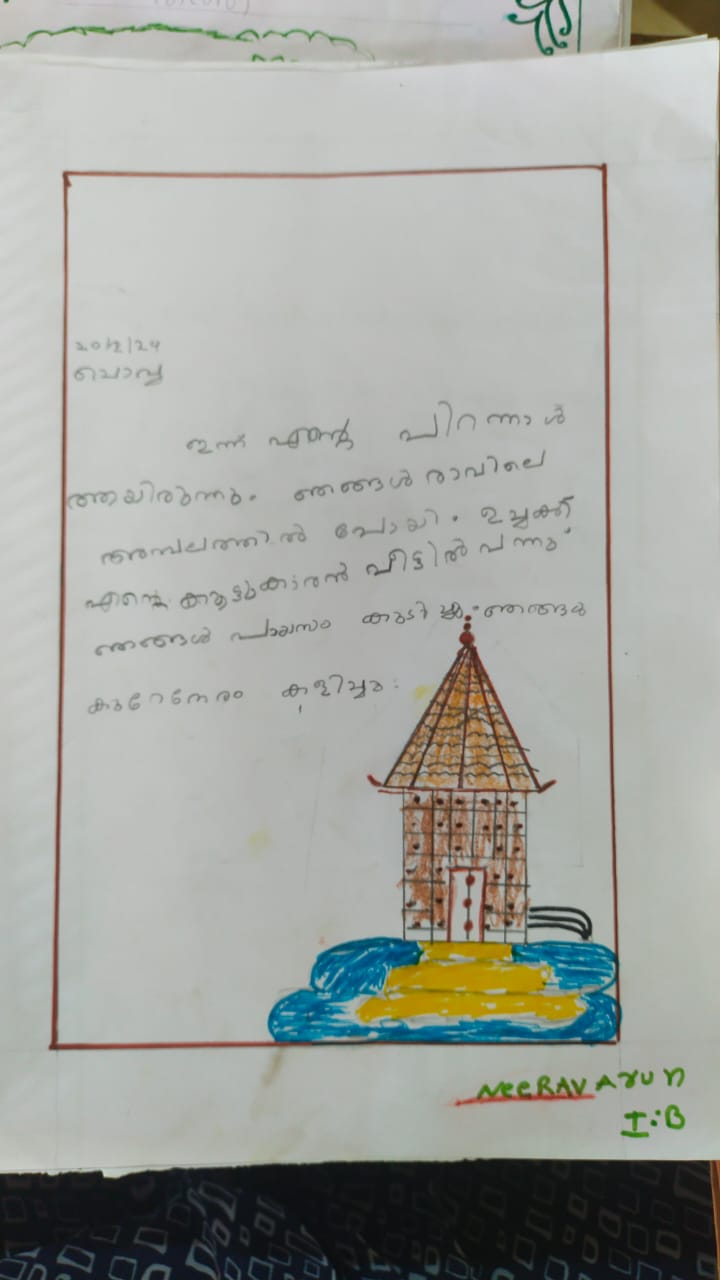 20/2/24
ചൊവ്വ
ഇന്ന് എന്റെ പിറന്നാൾ
ആയിരുന്നു. ഞങ്ങൾ രാവിലെ
അമ്പലത്തിൽ പോയി. ഉച്ചക്ക്
എന്റെ കൂട്ടുകാരൻ വീട്ടിൽ വന്നു.
ഞങ്ങൾ പായസം കുടിച്ചു. ഞങ്ങൾ
കുറേനേരം കളിച്ചു.
NeeRAV ArUn
I:B